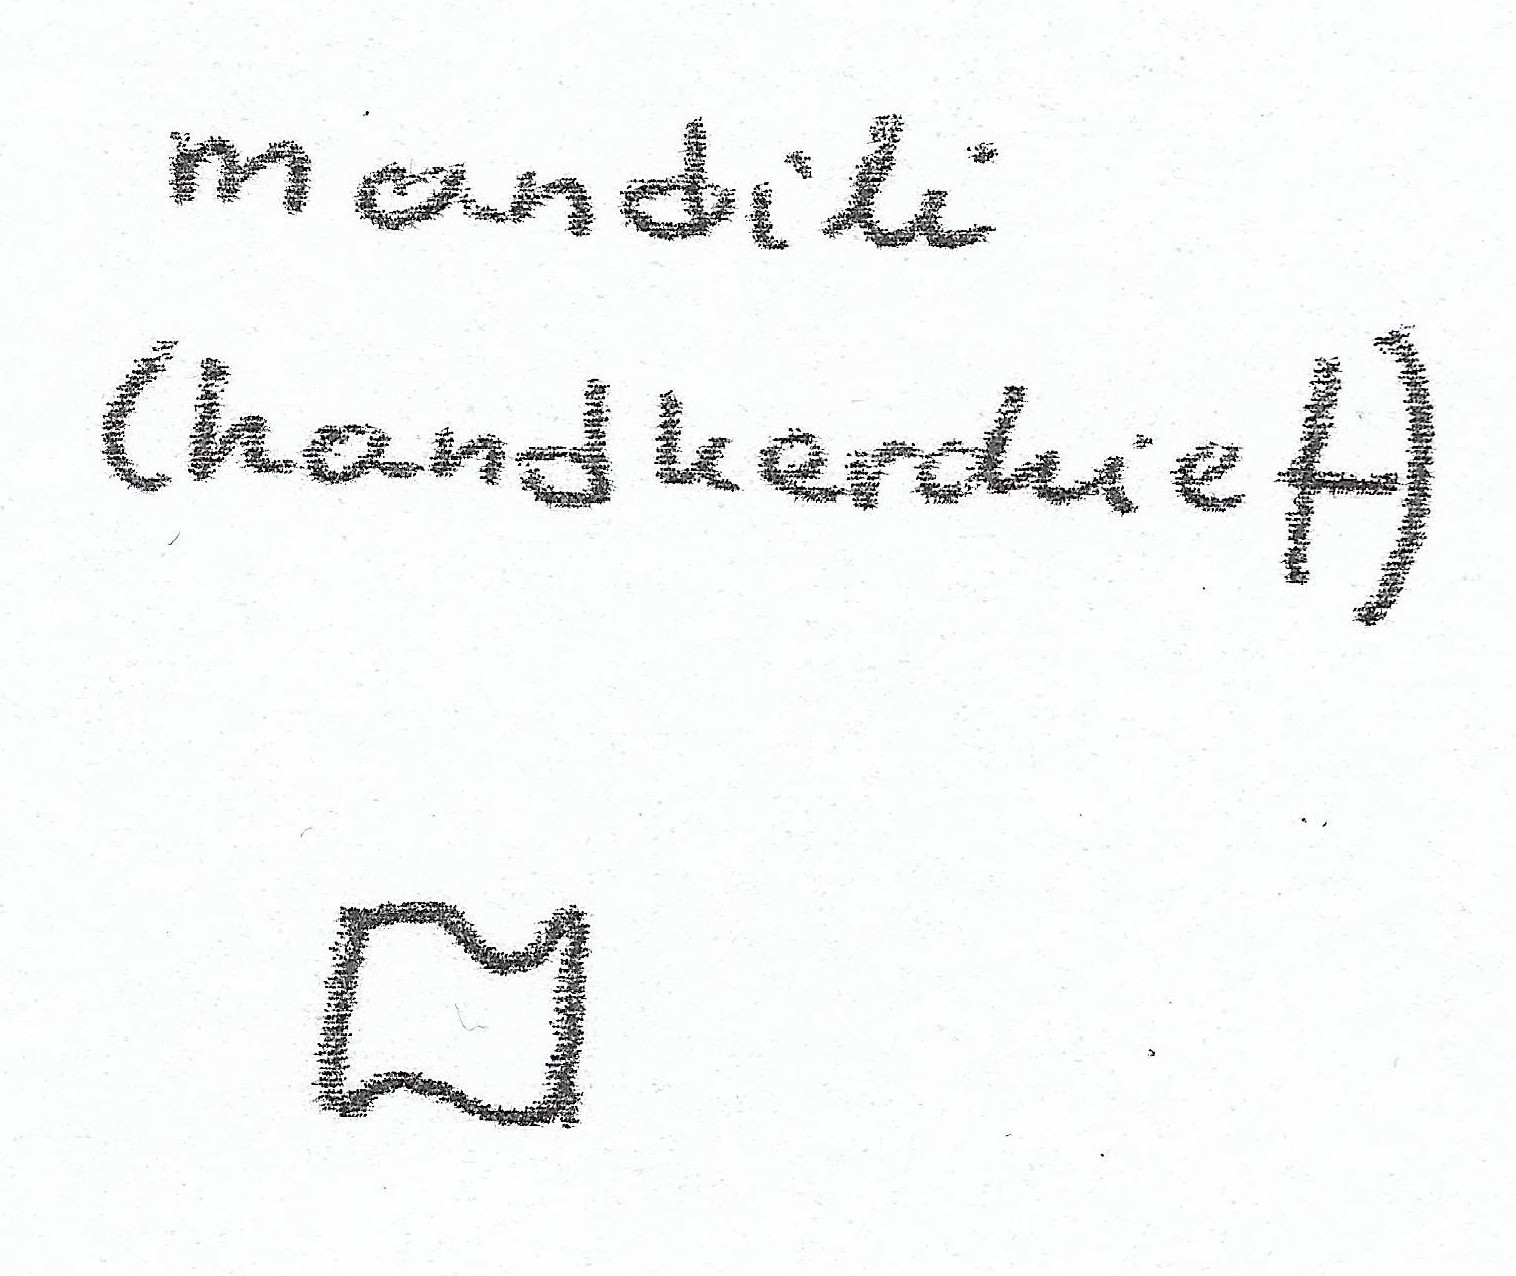 mandili
(handkerchief)